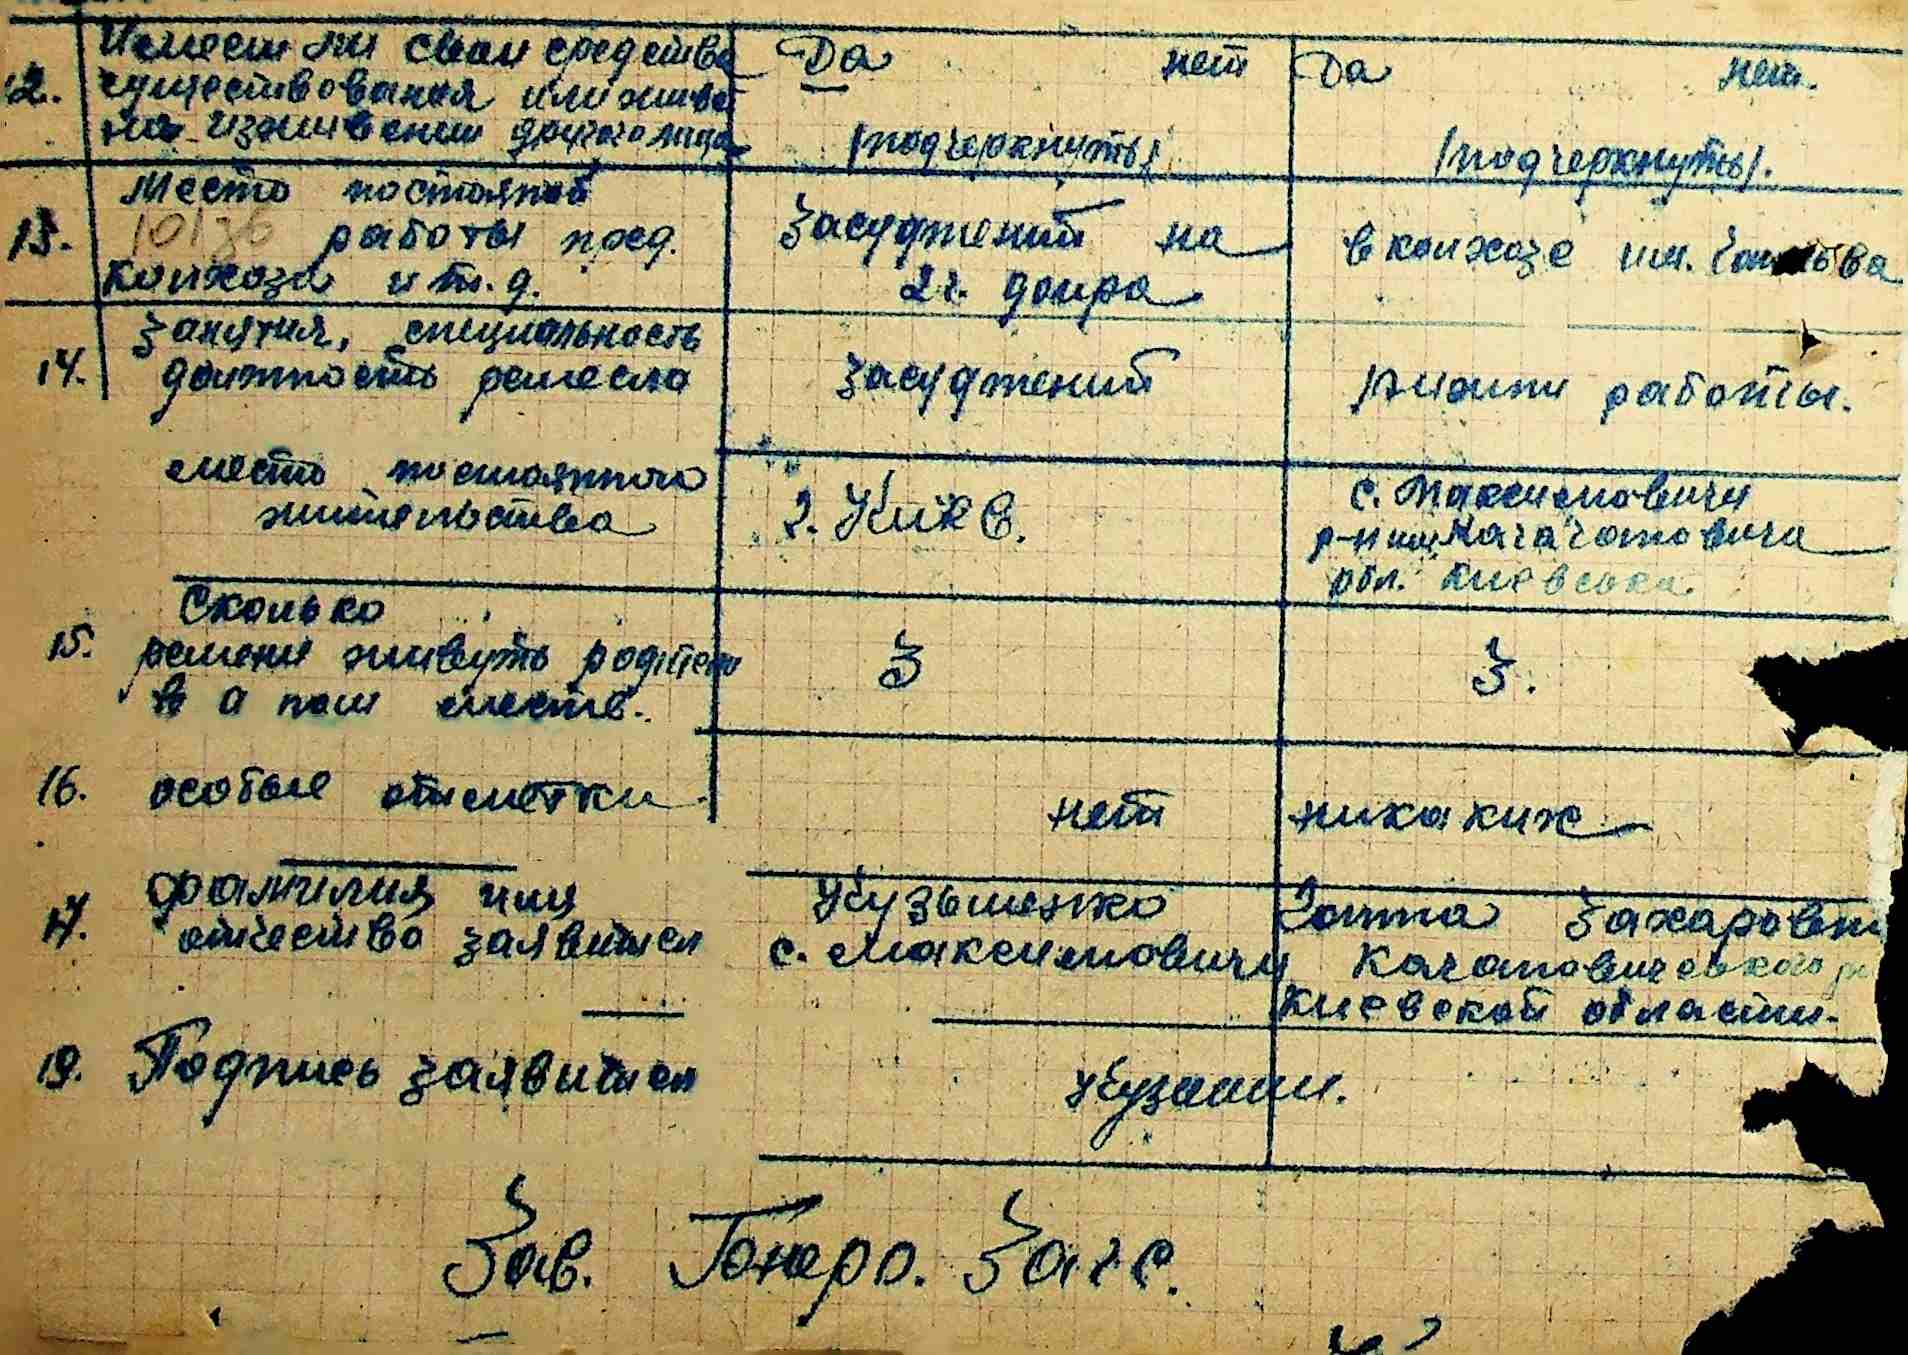 12. Имеет ли свои средства существования или живет на иждивении другого лица
Да нет
/подчеркнуть/
Да нет.
/подчеркнуть/.
13. Место постояной
работы пред.
колхоза и т.д.
Засуджений на
2 г. допра
в колхозе им.
14. Занятия, специальность
должность ремесло
Засуджений
работы.
место постоянного
жительства
г. Киев.
с. Максимовичи
р-н им. Кагановича
обл. Киевська
15. Сколько
времени живуть
в
3
3.
16. особые отметки.
нет никаких
17. фамилия имя
отчество заявителя
Кузьменко Ганна Захаровна
с. Максимовичи Кагановического
Киевской области.
19. Подпись заявителя
Кузьмен.
Зав. Загс.